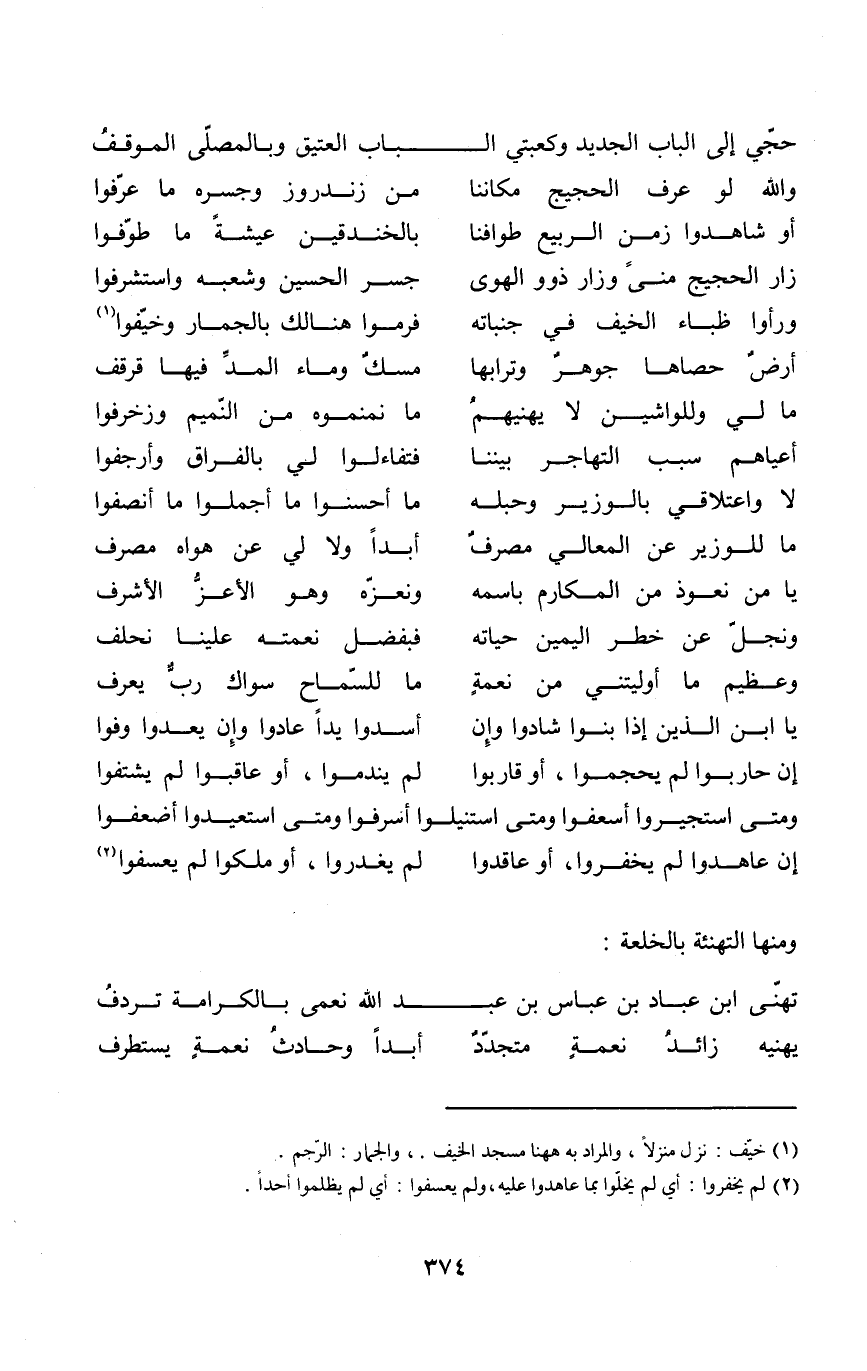 حجّي إلى الباب الجديد وكعبتي الـــباب العتيق وبالمصلّى الموقفُ
والله لو عرف الحجيج مكاننا من زندروز وجسره ما عرّفوا
أو شاهدوا زمن الربيع طوافنا بالخندقين عيشةً ما طوّفوا
زار الحجيج منىً وزار ذوو الهوى جسر الحسين وشعبه واستشرفوا
ورأوا ظباء الخيف في جنباته فرموا هنالك بالجمار وخيّفوا(١)
أرضٌ حصاها جوهرٌ وترابها مسكٌ وماء المدِّ فيها قرقف
ما لي وللواشين لا يهنيهمُ ما نمنموه من النّميم وزخرفوا
أعياهم سبب التهاجر بيننا فتفاءلوا لي بالفراق وأرجفوا
لا واعتلاقي بالوزير وحبله ما أحسنوا ما أجملوا ما أنصفوا
ما للوزير عن المعالي مصرفٌ أبداً ولا لي عن هواه مصرف
يا من نعوذ من المكارم باسمه ونعزّه وهو الأعزُّ الأشرف
ونجلّ عن خطر اليمين حياته فبفضل نعمته علينا نحلف
وعظيم ما أوليتني من نعمةٍ ما للسّماح سواك ربٌّ يعرف
يا ابن الذين إذا بنوا شادوا وإن أسدوا يداً عادوا وإن يعدوا وفوا
إن حاربوا لم يحجموا ، أو قاربوا لم يندموا ، أو عاقبوا لم يشتفوا
ومتى استجيروا أسعفوا ومتى استنيلوا أسرفوا ومتى استعيدوا أضعفوا
إن عاهدوا لم يخفروا، أو عاقدوا لم يغدروا ، أو ملكوا لم يعسفوا(٢)
ومنها التهنئة بالخلعة :
تهنّى ابن عباد بن عباس بن عبــد الله نعمى بالكرامة تردفُ
يهنيه زائدُ نعمةٍ متجدّدٌ أبداً وحادثُ نعمةٍ يستطرف
(١) خيّف : نزل منزلاً ، والمراد به ههنا مسجد الخيف . ، والجمار : الرّجم .
(٢) لم يخفروا : أي لم يخلّوا بما عاهدوا عليه، ولم يعسفوا : أي لم يظلموا أحداً .
٣٧٤